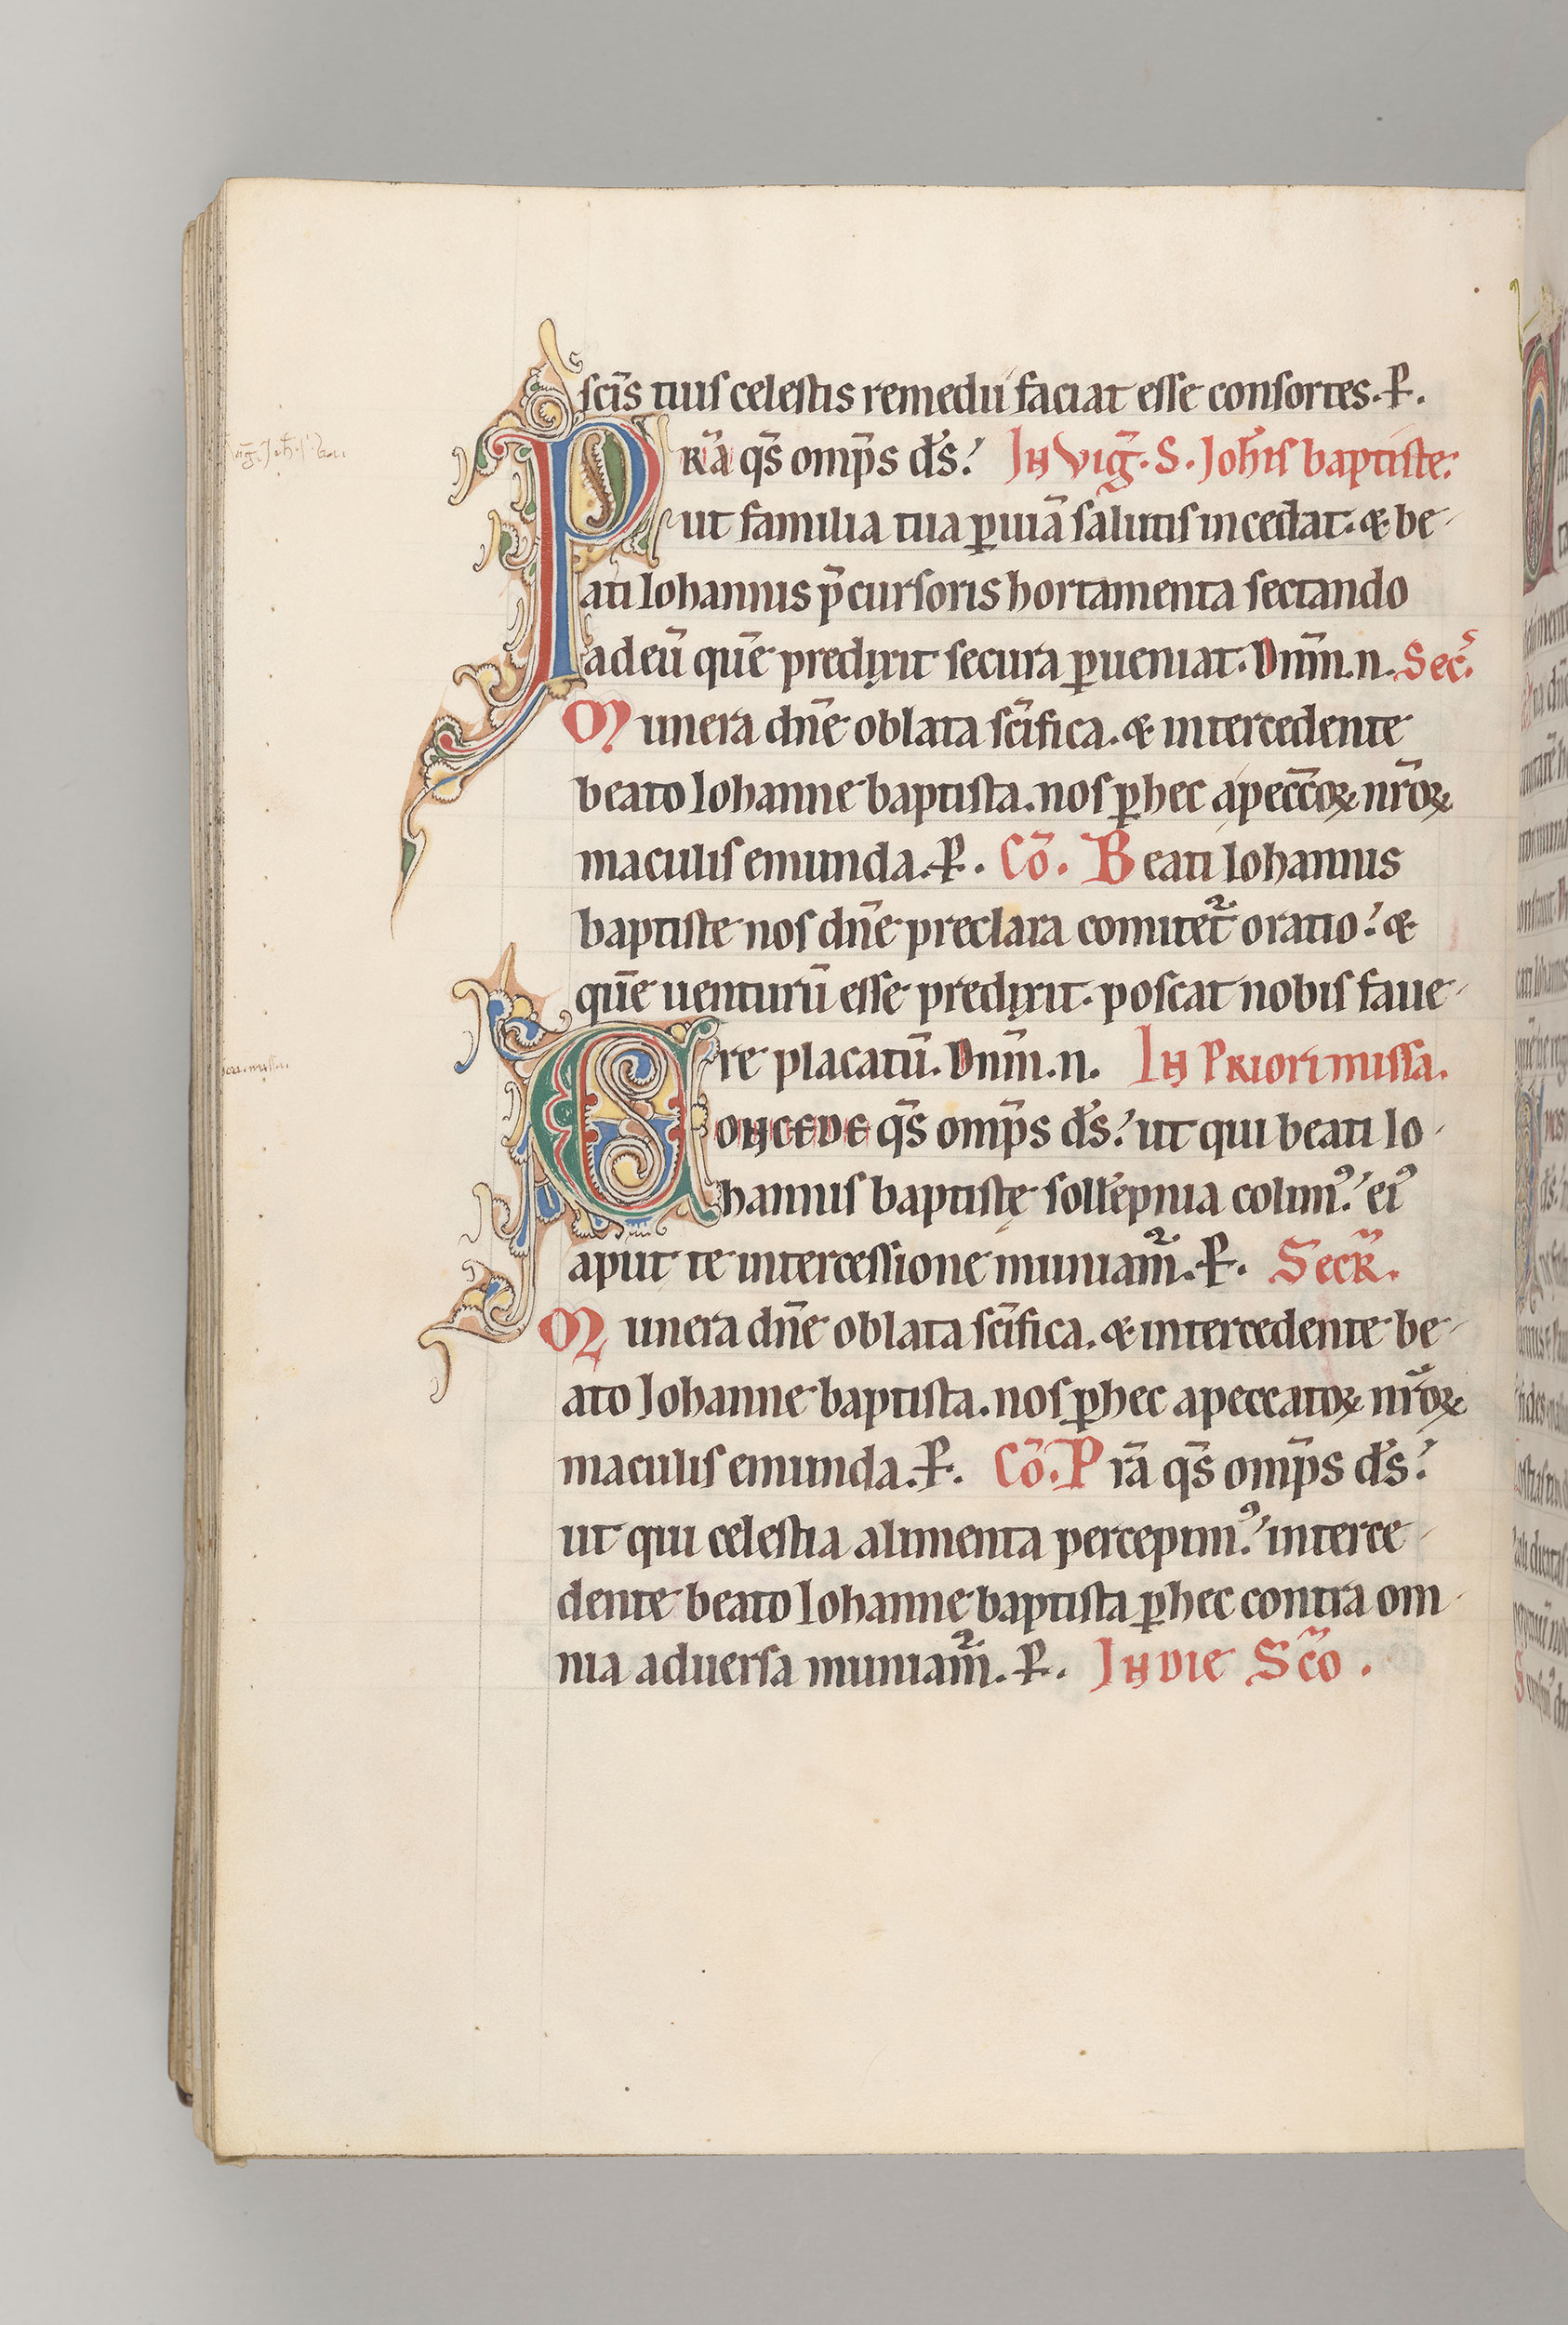 scīs tuis celestis remedii faciat esse consortes. P.
PRā qs̄ omp̄s ds̄. In viḡ. S. Joh̄is baptiste.
ut familia tua p uiā salutis incedat. & be-
ati Iohannis p̄cursoris hortamenta sectando
ad eū quē predixit secura p ueniat. Dn̄m. n. Sec̄.
Munera dn̄e oblata sc̄ifica. & intercedente
beato Iohanne baptista. nos p hec a pecc̄oꝝ nr̄oꝝ
maculis emunda. P. Cō. Beati Iohannis
baptiste nos dn̄e preclara comitet᷑ oratio. &
quē uenturū esse predixit. poscat nobis faue-
re placatū. Dn̄m. n. In priori missa.
Concede qs̄ omp̄s ds̄. ut qui beati Io-
hannis baptistę sollēpnia colimꝰ. eiꝰ
aput te intercessione muniam᷑. P. Secr̄.
Munera dn̄e oblata sc̄ifica. & intercedente be-
ato Iohanne baptista. nos p hec a peccatoꝝ nr̄oꝝ
maculis emunda. P. Cō. Prā qs̄ omp̄s ds̄.
ut qui celestia alimenta percepimꝰ. interce-
dente beato Iohanne baptista p hec contra om-
nia aduersa muniam᷑. P. In die Sc̄o.